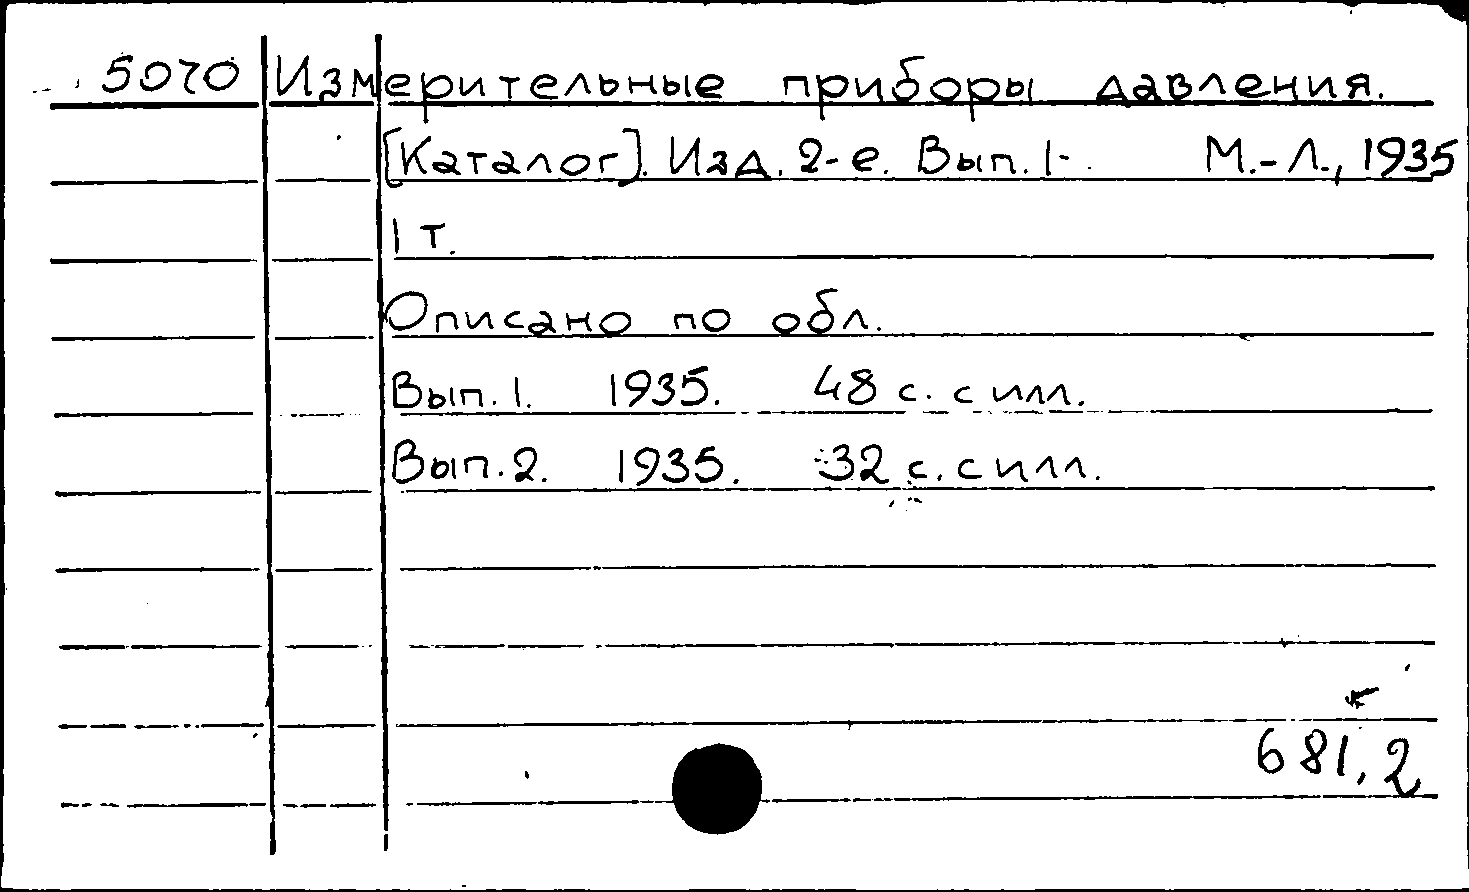 5070 Измерительные приборы давления.
[Каталог]. Изд. 2-е. Вып. 1- М.-Л., 1935
1 т.
Описано по обл.
Вып. 1. 1935. 48 с. с илл.
Вып. 2. 1935. 32 с. с илл.
681.2